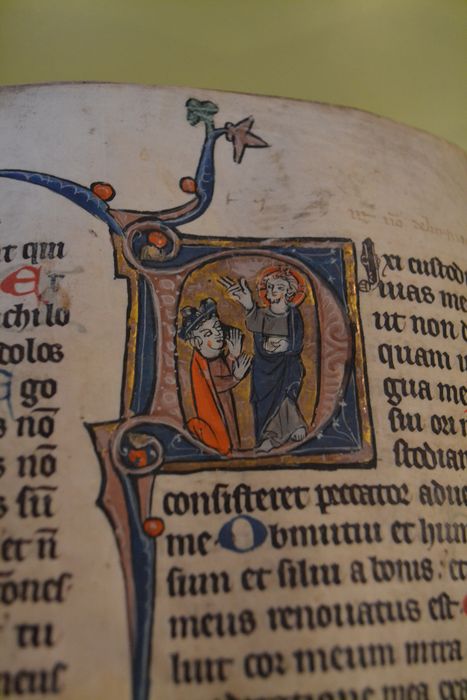 qui
Et
chilo
dolos
Ego
s nō
s nō
s sū
et n̄
ōnes
tu
meus
Dixi custodi
uias me
ut non
quam
gua me
sui ori
stodiam
consisteret peccator adu
me. Obmutui et hum
sium et silui a bonis: et
meus renouatus est
luit cor meum intra